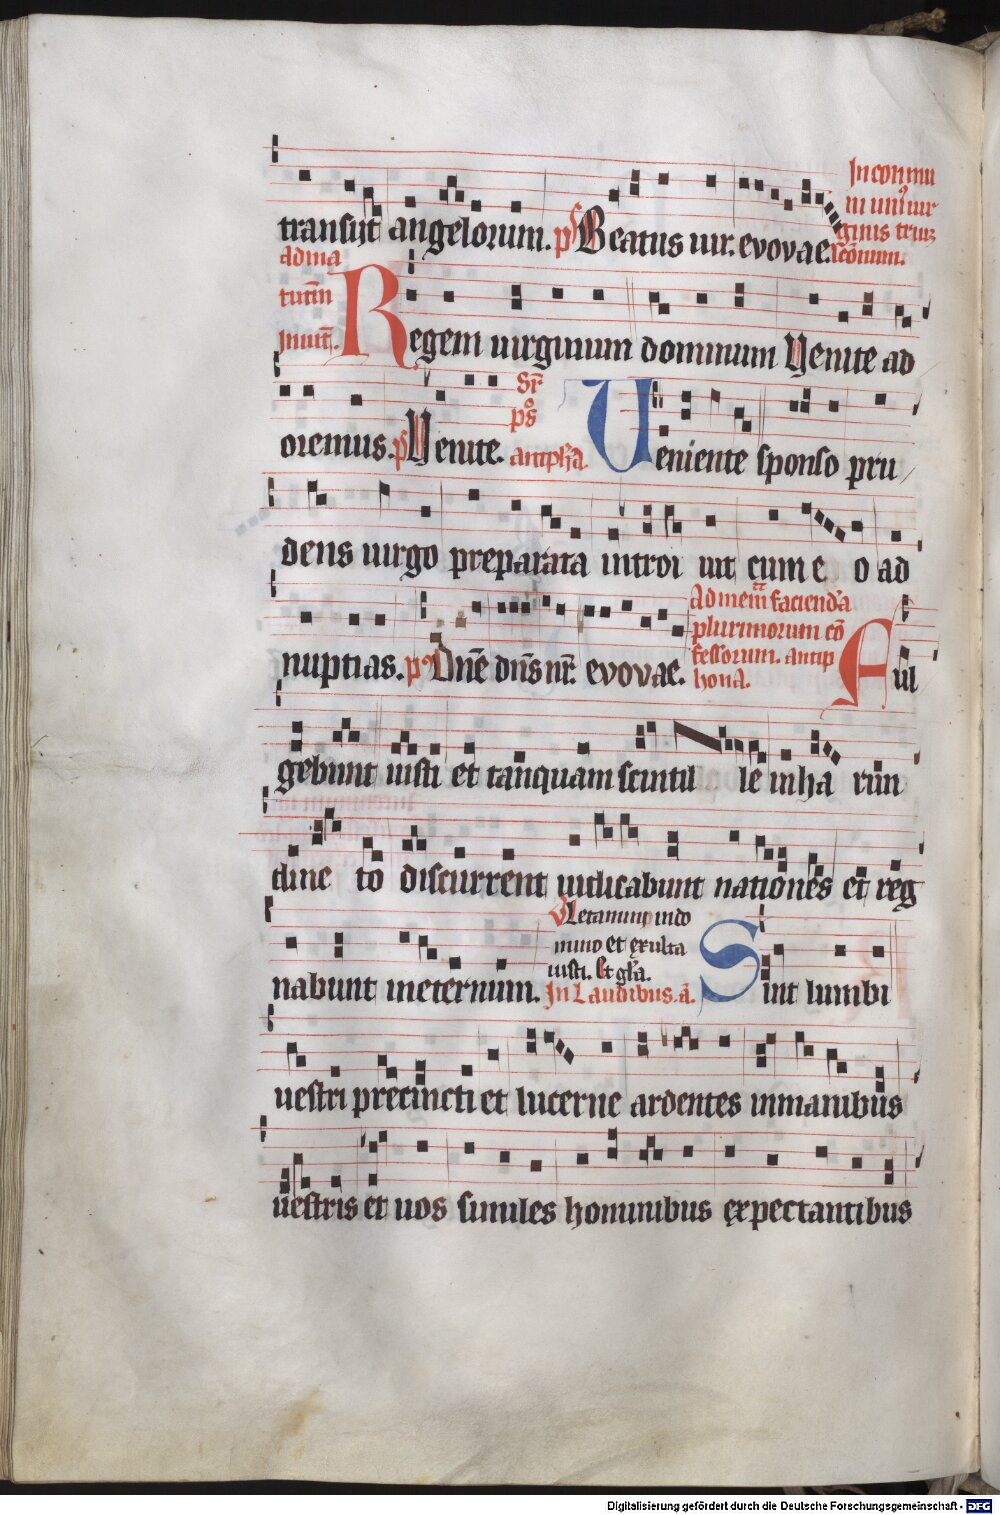 transijt angelorum. ps Beatus uir. evovae.
In conmu
ni uni⁹ uir
ginis triuz
lc̄onum.
ad ma
tutin̄
Inuit̄.
Regem uirginum dominum Venite ad
oremus. p Venite.
Sr̄
ps̄
antiph̄a.
Ueniente sponso pru
dens uirgo preparata introi uit cum e o ad
nuptias. p⁹ Dn̄e dn̄s nr̄. evovae.
Ad mem̄ faciend̄a
plurimorum cō
fessorum. antip
hona.
Ful
gebunt iusti et tanquam scintil le in ha run
dine to discurrent iudicabunt nationes et reg
nabunt ineternum.
V Letamini indo
mino et exulta
iusti. Et gl̄a.
In Laudibus. a̅.
Sint lumbi
uestri precincti et lucerne ardentes inmanibus
uestris et uos similes hominibus expectantibus
Digitalisierung gefördert durch die Deutsche Forschungsgemeinschaft - DFG